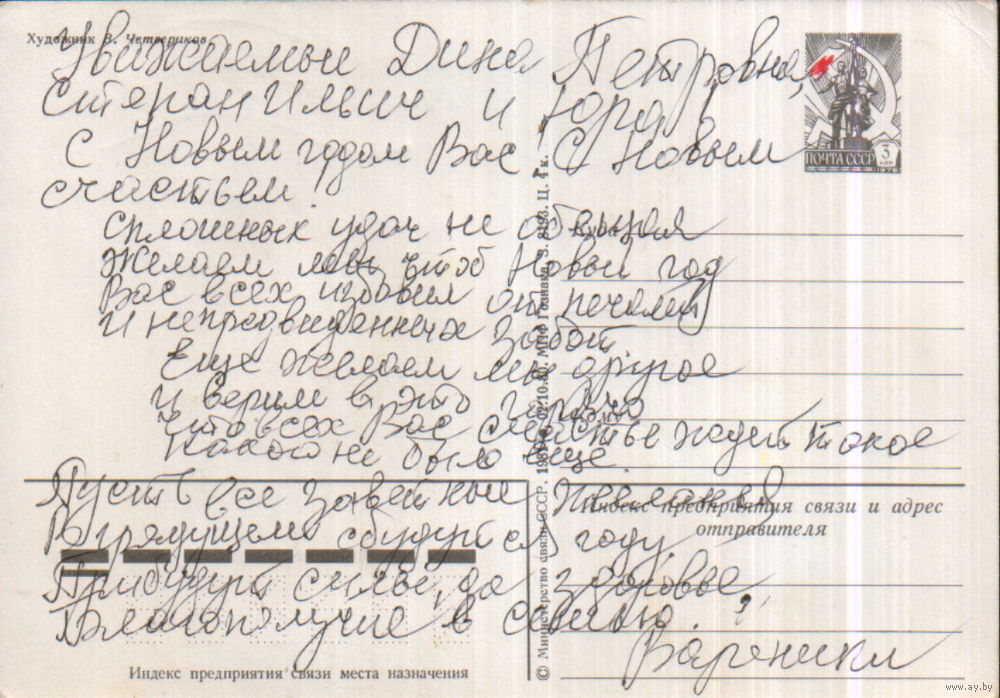 Художник В. Четвериков
Уважаемые Дина Петровна,
Степан Ильич и Юра!
С Новым годом Вас! С Новым
счастьем!
Сплошных удач не обещая
Желаем мы чтоб Новый год
Вас всех избавил от печалей
И непредвиденных забот
Еще желаем мы другое
и верим в это горячо
Что всех Вас счастье ждет такое
Какого не было еще.
Пусть все заветные желания
В грядущем сбудутся году.
Прибудут силы, да здоровье,
Благополучие в семью.
Вареники
ПОЧТА СССР 3 коп
Куда
Кому
Индекс предприятия связи и адрес
отправителя
Индекс предприятия связи места назначения
© Министерство связи СССР, 02.10.80. МПФ Гознака. Ц. 4 к.
www.ay.by